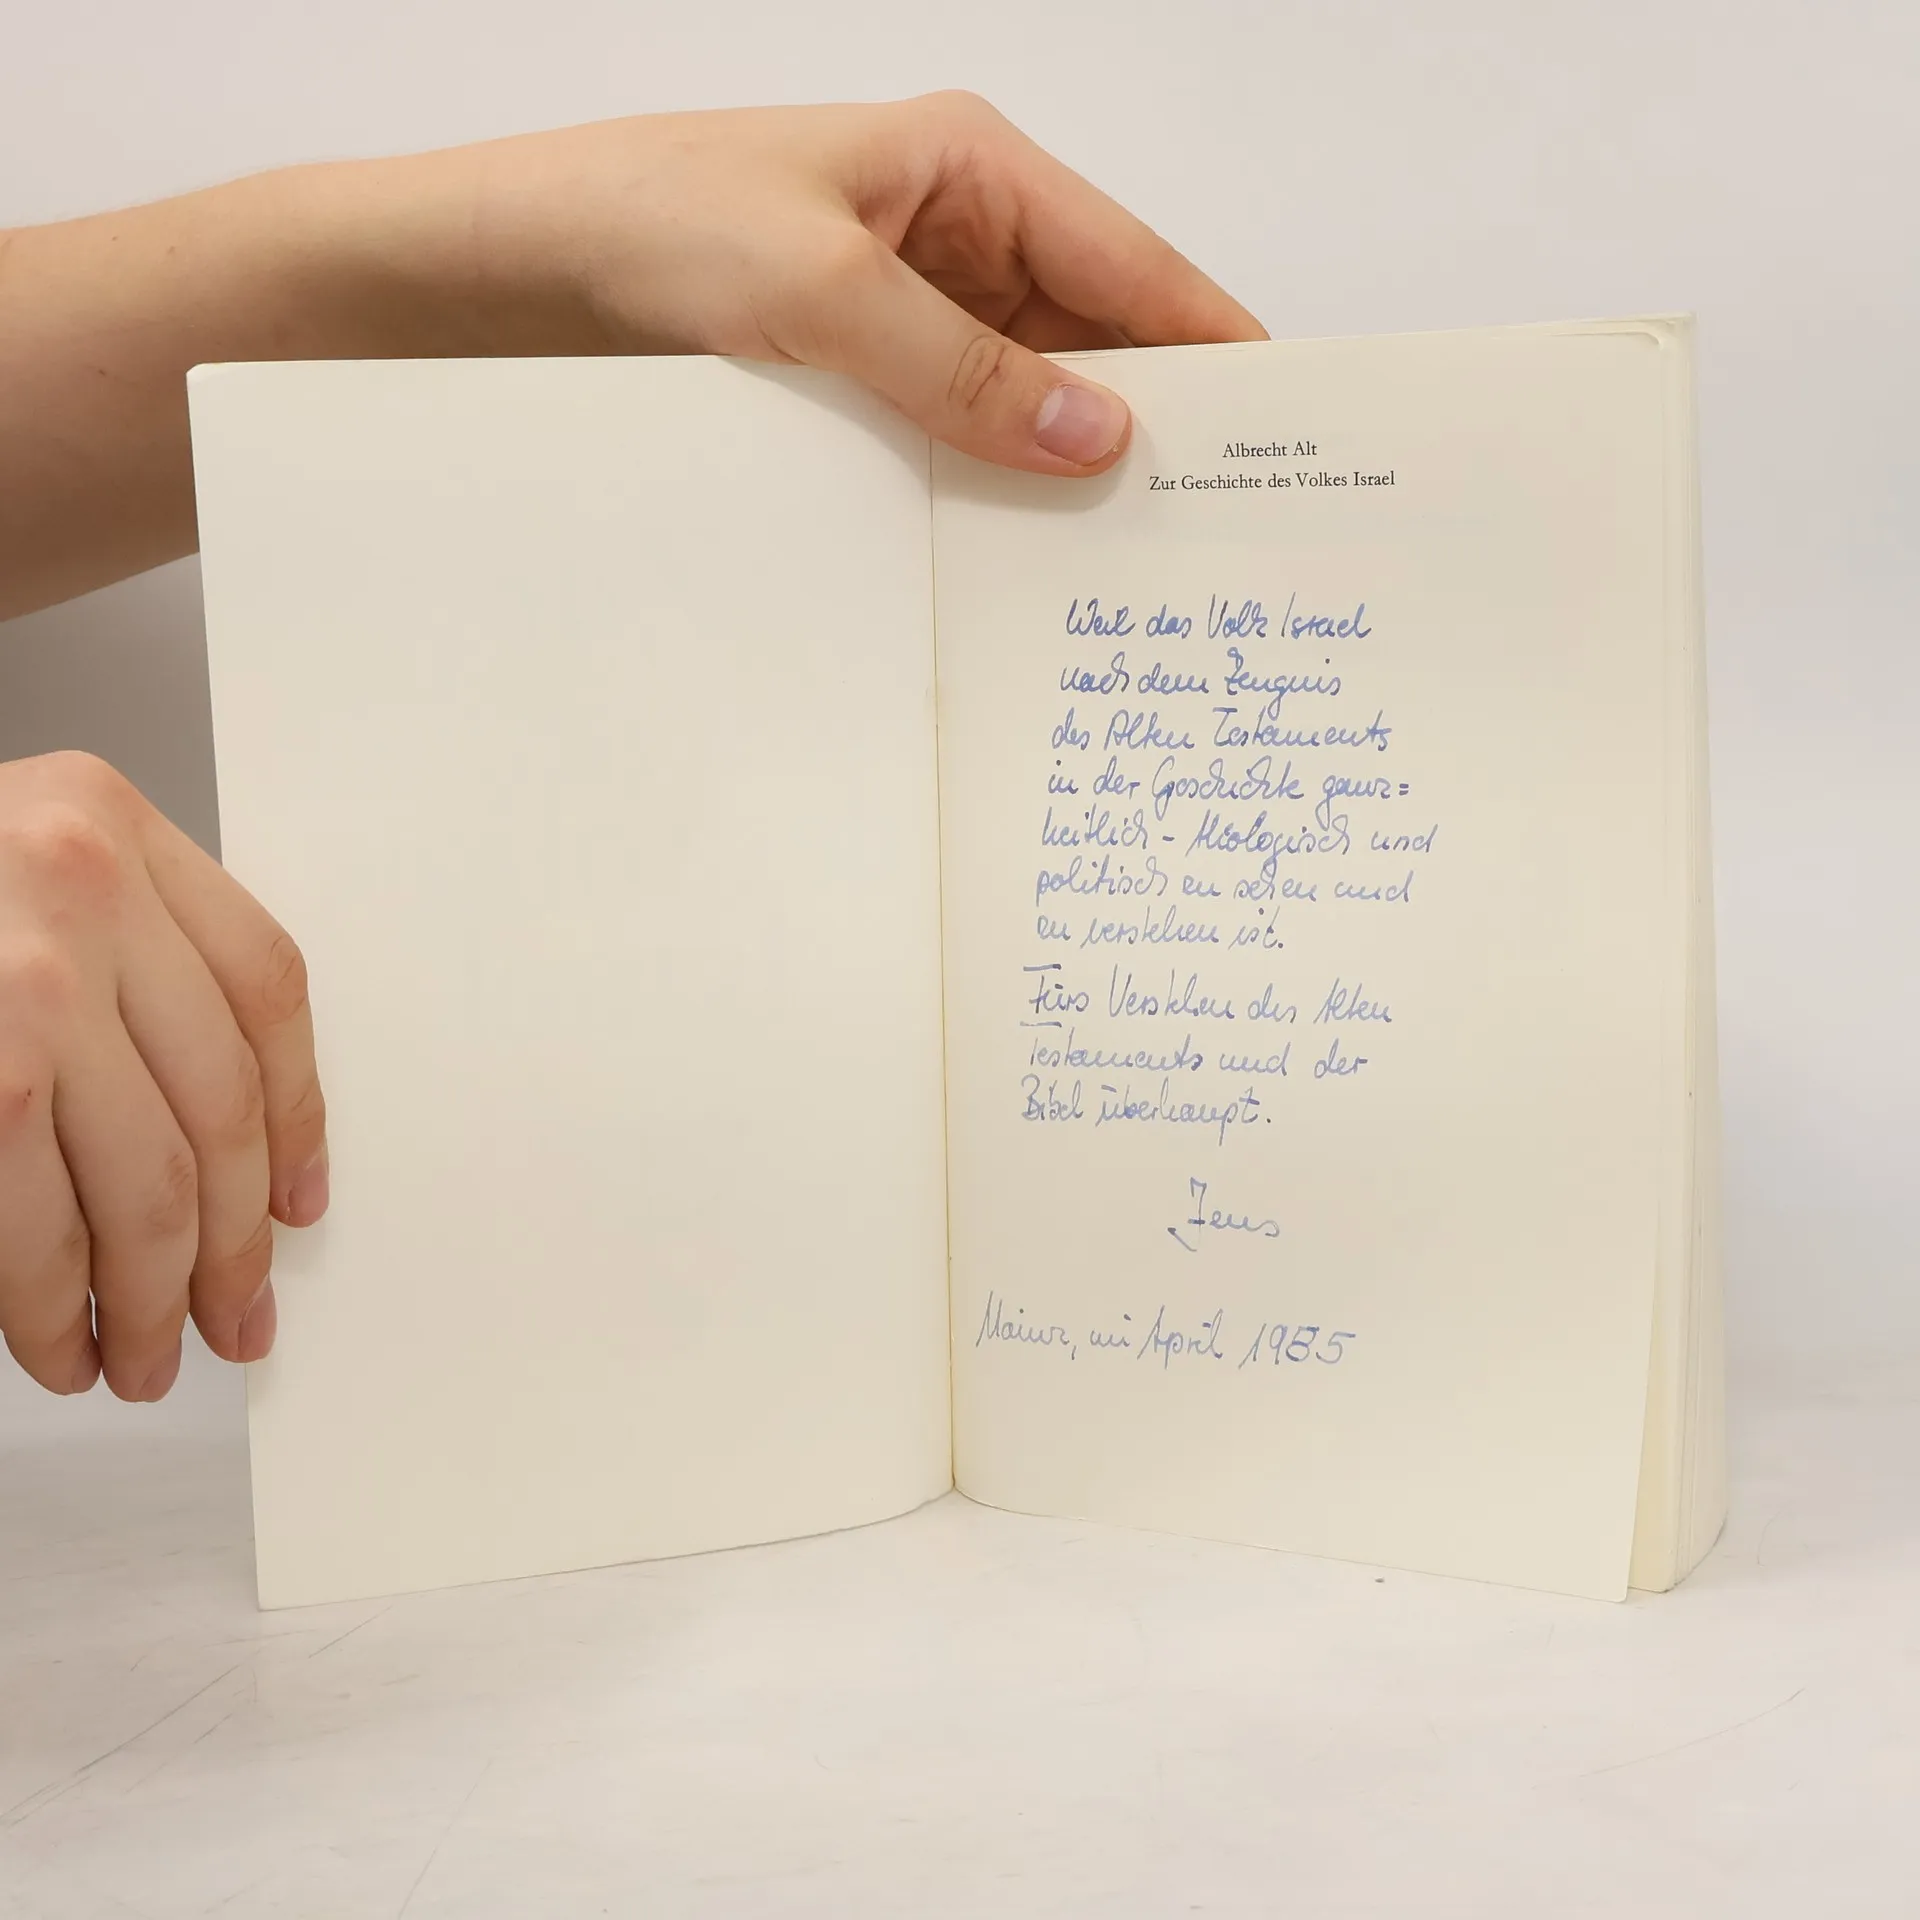 Albrecht Alt
Zur Geschichte des Volkes Israel
Weil das Volk Israel
nach dem Zeugnis
des Alten Testaments
in der Geschichte ganz=
heitlich - theologisch und
politisch zu sehen und
zu verstehen ist.
Fürs Verstehen des Alten
Testaments und der
Bibel überhaupt.
Jens
Mainz, im April 1985